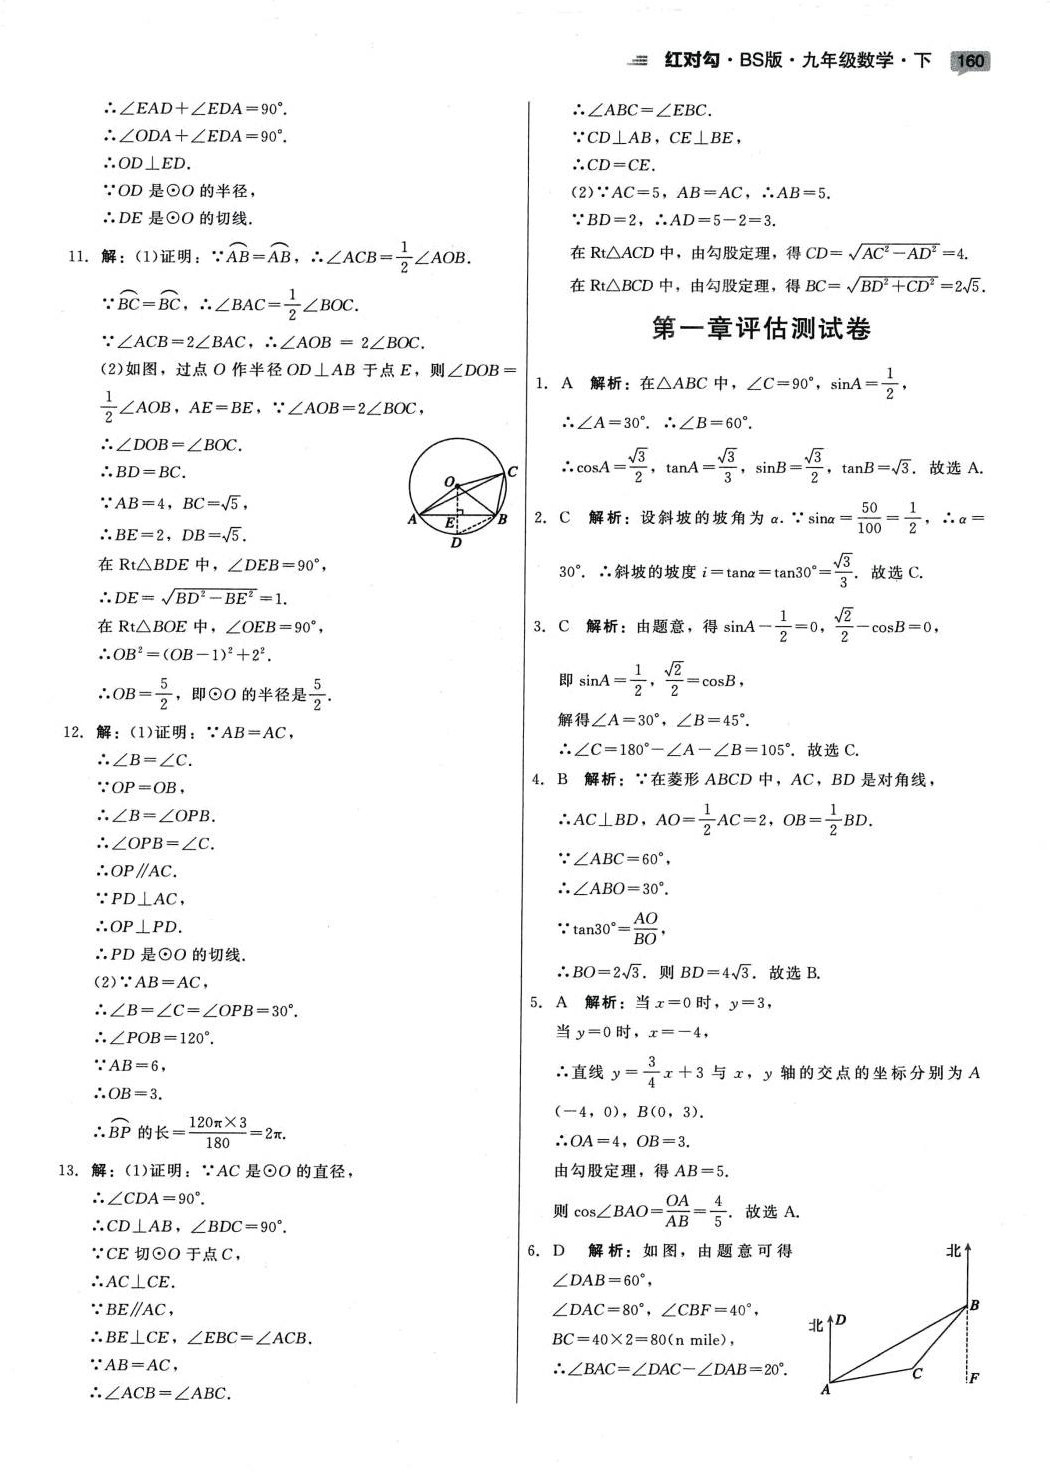 红对勾·BS版·九年级数学·下 160
∴∠EAD+∠EDA=90°.
∴∠ODA+∠EDA=90°.
∴OD⊥ED.
∵OD 是⊙O 的半径，
∴DE 是⊙O 的切线.
11. 解：(1)证明：∵⌒AB=⌒AB，∴∠ACB=1/2∠AOB.
∵⌒BC=⌒BC，∴∠BAC=1/2∠BOC.
∵∠ACB=2∠BAC，∴∠AOB = 2∠BOC.
(2)如图，过点 O 作半径 OD⊥AB 于点 E，则∠DOB=
1/2∠AOB，AE=BE，∵∠AOB=2∠BOC，
∴∠DOB=∠BOC.
∴BD=BC.
∵AB=4，BC=√5，
∴BE=2，DB=√5.
在 Rt△BDE 中，∠DEB=90°，
∴DE=√(BD²-BE²)=1.
在 Rt△BOE 中，∠OEB=90°，
∴OB²=(OB-1)²+2².
∴OB=5/2，即⊙O 的半径是5/2.
O
C
A
E
B
D
12. 解：(1)证明：∵AB=AC，
∴∠B=∠C.
∵OP=OB，
∴∠B=∠OPB.
∴∠OPB=∠C.
∴OP∥AC.
∵PD⊥AC，
∴OP⊥PD.
∴PD 是⊙O 的切线.
(2)∵AB=AC，
∴∠B=∠C=∠OPB=30°.
∴∠POB=120°.
∵AB=6，
∴OB=3.
∴⌒BP 的长=120π×3/180=2π.
13. 解：(1)证明：∵AC 是⊙O 的直径，
∴∠CDA=90°.
∴CD⊥AB，∠BDC=90°.
∵CE 切⊙O 于点 C，
∴AC⊥CE.
∵BE∥AC，
∴BE⊥CE，∠EBC=∠ACB.
∵AB=AC，
∴∠ACB=∠ABC.
∴∠ABC=∠EBC.
∵CD⊥AB，CE⊥BE，
∴CD=CE.
(2)∵AC=5，AB=AC，∴AB=5.
∵BD=2，∴AD=5-2=3.
在 Rt△ACD 中，由勾股定理，得 CD=√(AC²-AD²)=4.
在 Rt△BCD 中，由勾股定理，得 BC=√(BD²+CD²)=2√5.
第一章评估测试卷
1. A 解析：在△ABC 中，∠C=90°，sinA=1/2，
∴∠A=30°. ∴∠B=60°.
∴cosA=√3/2，tanA=√3/3，sinB=√3/2，tanB=√3. 故选 A.
2. C 解析：设斜坡的坡角为 α. ∵sinα=50/100=1/2，∴α=
30°. ∴斜坡的坡度 i=tanα=tan30°=√3/3. 故选 C.
3. C 解析：由题意，得 sinA-1/2=0，√2/2-cosB=0，
即 sinA=1/2，√2/2=cosB，
解得∠A=30°，∠B=45°.
∴∠C=180°-∠A-∠B=105°. 故选 C.
4. B 解析：∵在菱形 ABCD 中，AC，BD 是对角线，
∴AC⊥BD，AO=1/2AC=2，OB=1/2BD.
∵∠ABC=60°，
∴∠ABO=30°.
∵tan30°=AO/BO，
∴BO=2√3. 则 BD=4√3. 故选 B.
5. A 解析：当 x=0 时，y=3，
当 y=0 时，x=-4，
∴直线 y=3/4x+3 与 x，y 轴的交点的坐标分别为 A
(-4，0)，B(0，3).
∴OA=4，OB=3.
由勾股定理，得 AB=5.
则 cos∠BAO=OA/AB=4/5. 故选 A.
6. D 解析：如图，由题意可得
∠DAB=60°，
∠DAC=80°，∠CBF=40°，
BC=40×2=80(n mile)，
∴∠BAC=∠DAC-∠DAB=20°.
北
B
北 D
C
F
A